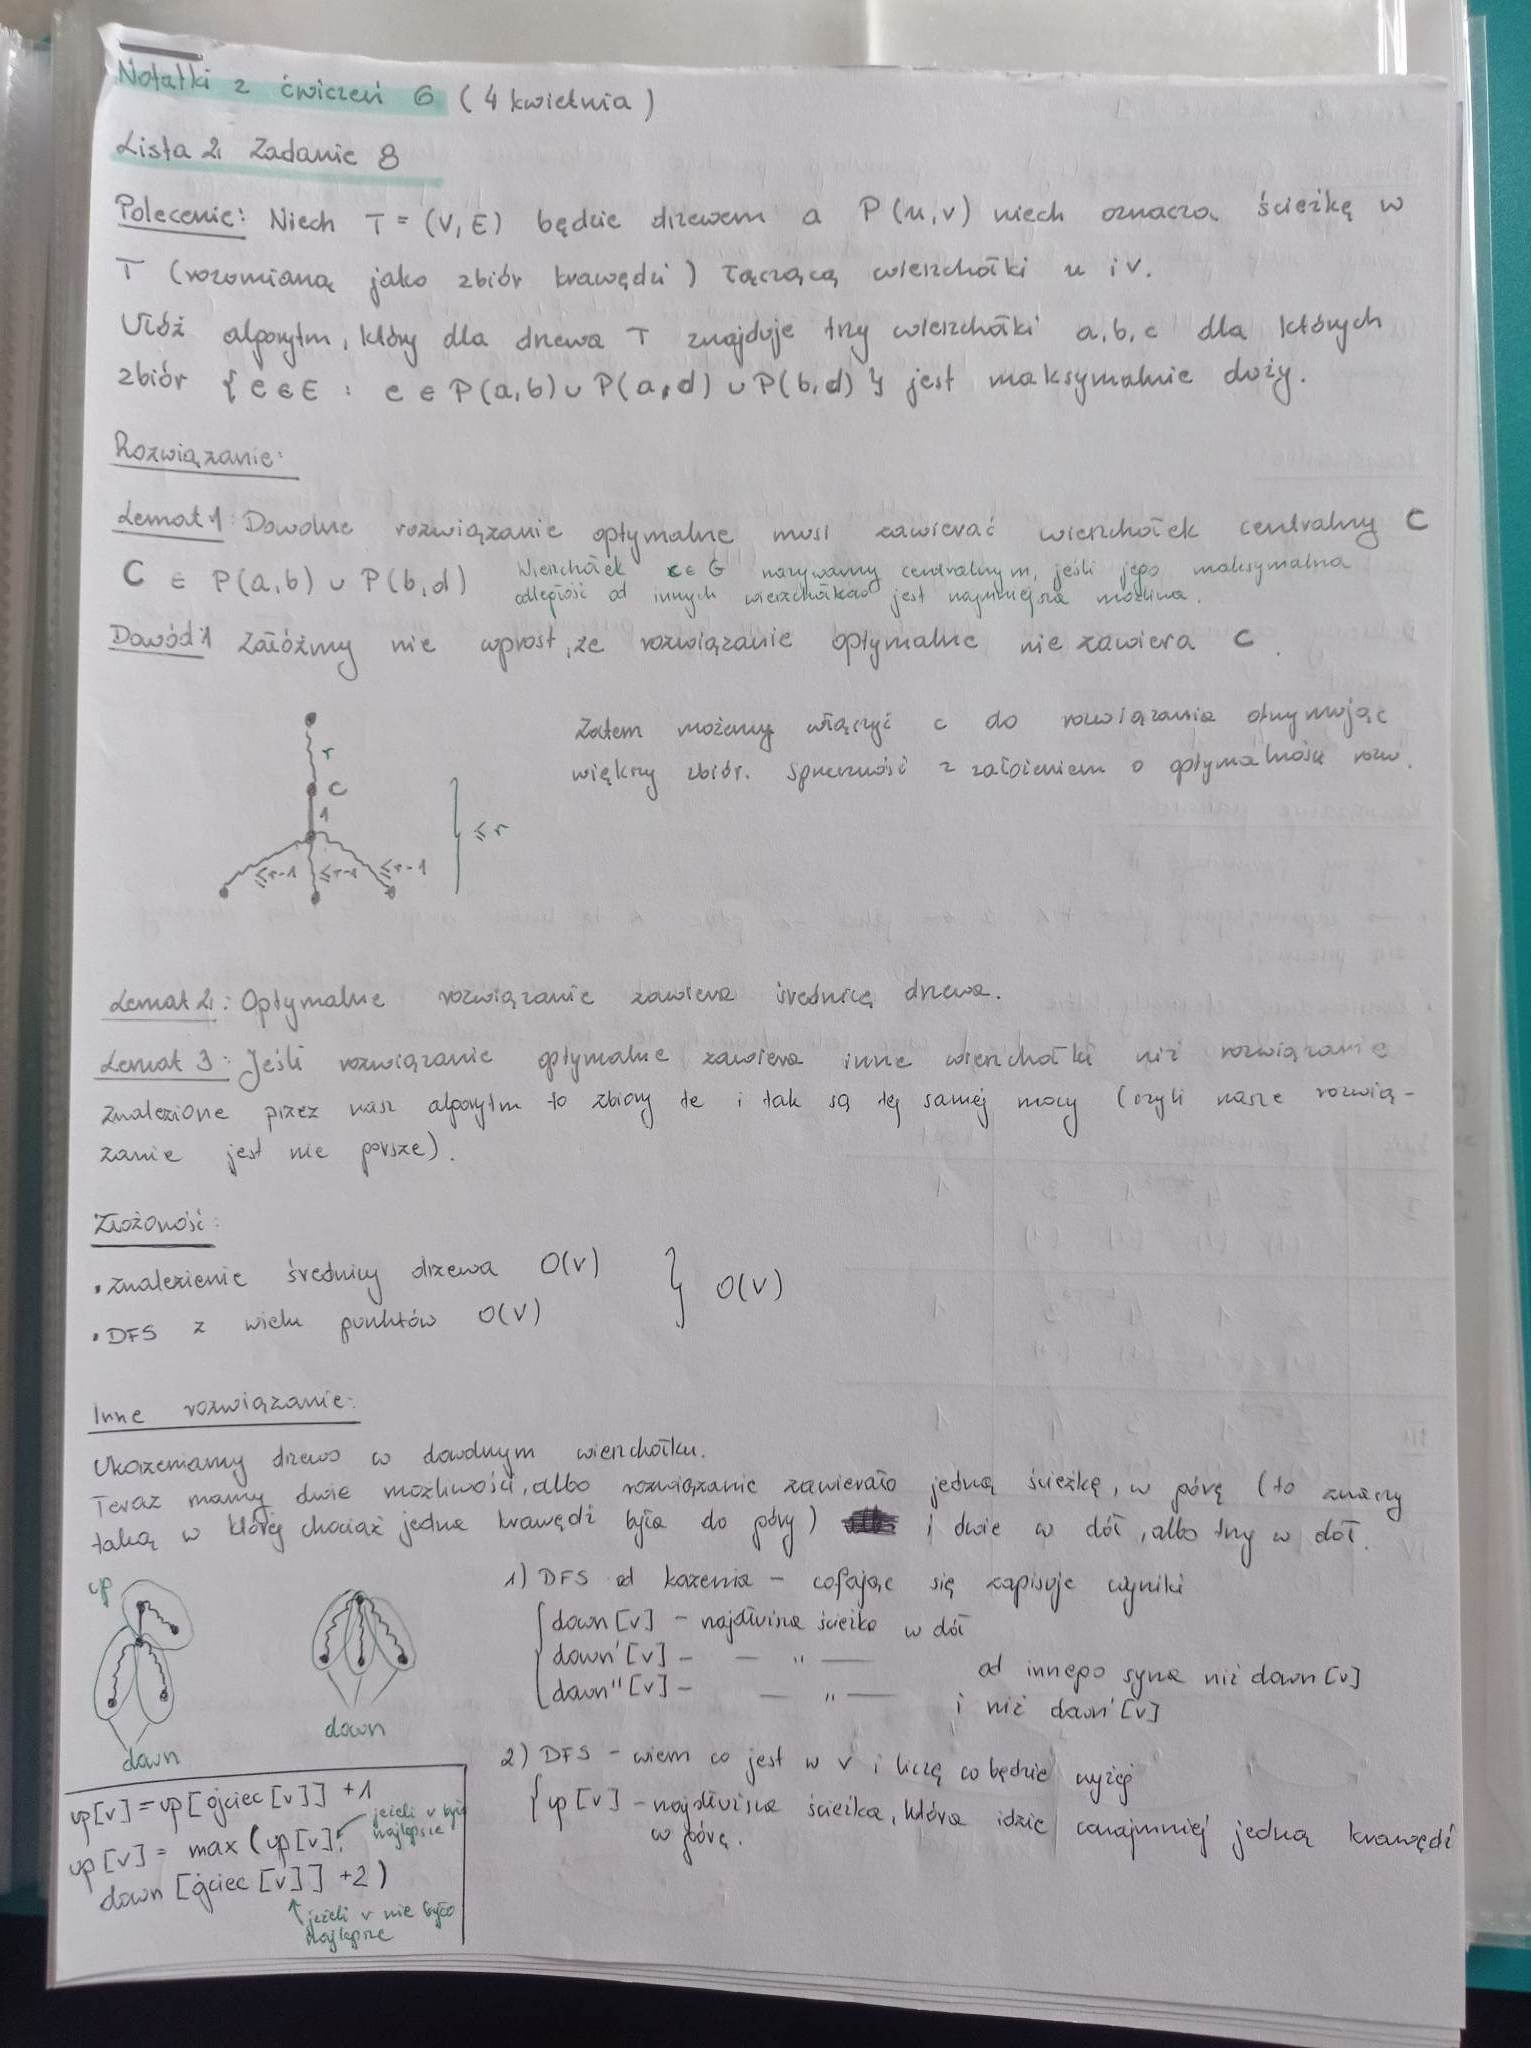 Notatki z ćwiczeń 6 (4 kwietnia)
Lista 2 Zadanie 8
Polecenie: Niech T = (V, E) będzie drzewem a P(u,v) niech oznacza ścieżkę w
T (rozumianą jako zbiór krawędzi) łączącą wierzchołki u i v.
Ułóż algorytm, który dla drzewa T znajduje trzy wierzchołki a, b, c dla których
zbiór { e ∈ E : e ∈ P(a,b) ∪ P(a,d) ∪ P(b,d) } jest maksymalnie duży.
Rozwiązanie:
Lemat 1: Dowolne rozwiązanie optymalne musi zawierać wierzchołek centralny C
C ∈ P(a,b) ∪ P(b,d)
Wierzchołek c ∈ G nazywamy centralnym, jeśli jego maksymalna
odległość od innych wierzchołków jest najmniejsza możliwa.
Dowód 1 Załóżmy nie wprost, że rozwiązanie optymalne nie zawiera C.
Zatem możemy włączyć c do rozwiązania otrzymując
większy zbiór. Sprzeczność z założeniem o optymalności rozw.
r
C
1
≤r-1 ≤r-1 ≤r-1
≤ r
Lemat 2: Optymalne rozwiązanie zawiera średnicę drzewa.
Lemat 3: Jeśli rozwiązanie optymalne zawiera inne wierzchołki niż rozwiązanie
znalezione przez nasz algorytm to zbiory te i tak są tej samej mocy (czyli nasze rozwią-
zanie jest nie gorsze).
Złożoność:
• znalezienie średnicy drzewa O(V)
• DFS z wielu punktów O(V)
} O(V)
Inne rozwiązanie:
Ukorzeniamy drzewo w dowolnym wierzchołku.
Teraz mamy dwie możliwości, albo rozwiązanie zawierało jedną ścieżkę, w górę (to znaczy
taką w której chociaż jedna krawędź była do góry) i dwie w dół, albo trzy w dół.
up
down
down
1) DFS od korzenia - cofając się zapisuje wyniki
{ down[v] - najdłuższa ścieżka w dół
down'[v] - — " — od innego syna niż down[v]
down''[v] - — " — i niż down'[v]
2) DFS - wiem co jest w v i liczę co będzie wyżej
{ up[v] - najdłuższa ścieżka, która idzie conajmniej jedną krawędź
w górę.
up[v] = up[ojciec[v]] +1
up[v] = max(up[v],
down[ojciec[v]] +2)
jeżeli v było
najlepsze
jeżeli v nie było
najlepsze